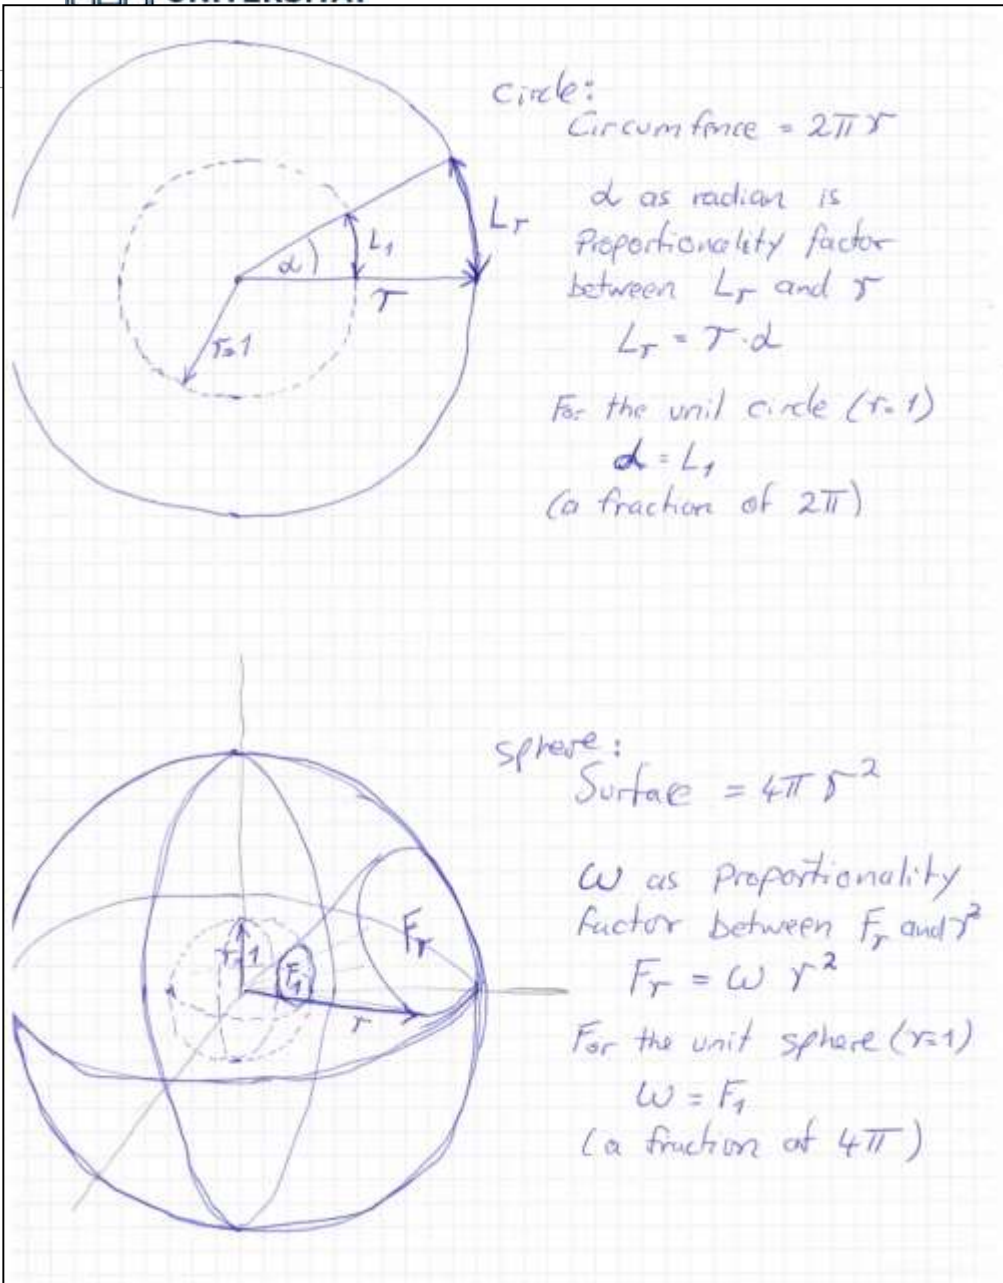 circle:
Circumfence = 2πr
α as radian is
Proportionality factor
between Lr and r
Lr = r·α
For the unit circle (r=1)
α = L1
(a fraction of 2π)
Lr
L1
α
r
r=1
sphere:
Surface = 4π r²
ω as proportionality
factor between Fr and r²
Fr = ω r²
For the unit sphere (r=1)
ω = F1
(a fraction of 4π)
Fr
r=1
F1
r